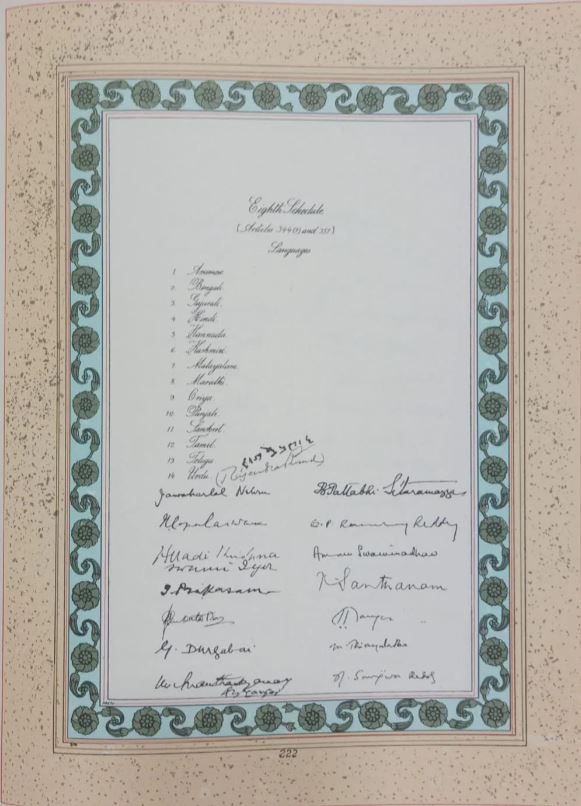 Eighth Schedule
[Articles 344(1) and 351]
Languages
1 Assamese.
2 Bengali.
3 Gujarati.
4 Hindi.
5 Kannada.
6 Kashmiri.
7 Malayalam.
8 Marathi.
9 Oriya.
10 Punjabi.
11 Sanskrit.
12 Tamil.
13 Telugu.
14 Urdu.
(Rajendra Prasad)
Jawaharlal Nehru
B Pattabhi Sitaramayya
Reddy
Alladi Krishna
swami Iyer
Ammu Swaminadhan
T. Prakasam
K Santhanam
G. Durgabai
Reddy
222